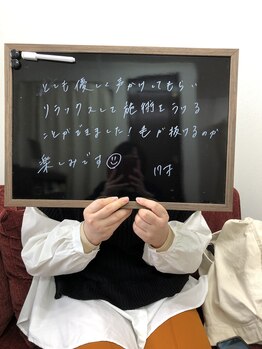 とても優しく声かけしてもらい
リラックスして施術をうける
ことができました！毛が抜けるのが
楽しみです☺